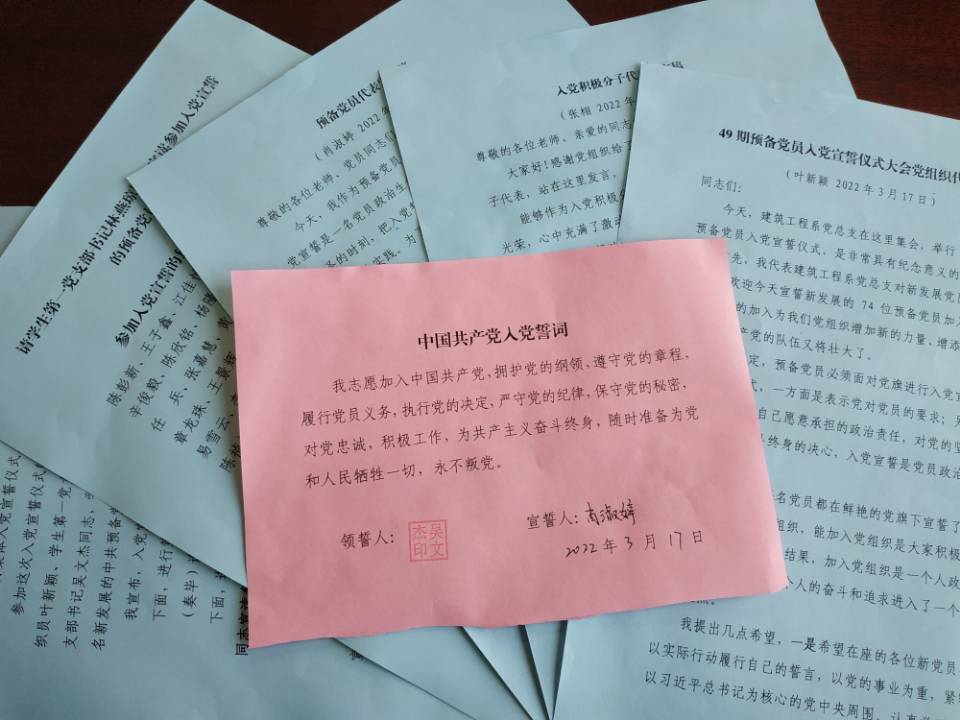 中国共产党入党誓词
我志愿加入中国共产党,拥护党的纲领,遵守党的章程,
履行党员义务,执行党的决定,严守党的纪律,保守党的秘密,
对党忠诚,积极工作,为共产主义奋斗终身,随时准备为党
和人民牺牲一切,永不叛党。
领誓人:
吴文杰印
宣誓人:肖淑婷
2022年3月17日
请学生第一党支部书记林燕
请参加入党宣誓
的预备党
参加入党宣誓的
陈彭新、王子鑫、江佳
辛俊毅、陈欣铭、杨
任 兵、张嘉慧、黄
章龙珠、王景辉
易雪云、李
预备党员代表
(肖淑婷 2022年
尊敬的各位老师、党员同志们
今天,我作为预备党员
宣誓是一名党员政治生
的时刻,把入党
实践,为
入党积极分子代
(张栩 2022年
尊敬的各位老师、亲爱的同志
大家好!感谢党组织给了
子代表,站在这里发言,
能够作为入党积极
光荣,心中充满了激动
49期预备党员入党宣誓仪式大会党组织代
(叶新颖 2022年3月17日)
同志们:
今天,建筑工程系党总支在这里集会,举行
预备党员入党宣誓仪式,是非常具有纪念意义的
先,我代表建筑工程系党总支对新发展党
欢迎今天宣誓新发展的74位预备党员加
的加入为我们党组织增加新的力量、增添
产党的队伍又将壮大了。
定,预备党员必须面对党旗进行入党宣
式,一方面是表示党对党员的要求;另
自己愿意承担的政治责任,对党的坚
斗终身的决心,入党宣誓是党员政治
名党员都在鲜艳的党旗下宣誓了
组织,能加入党组织是大家积极
结果,加入党组织是一个人政
个人的奋斗和追求进入了一个
我提出几点希望,一是希望在座的各位新党员
以实际行动履行自己的誓言,以党的事业为重,紧
以习近平总书记为核心的党中央周围,认真
参加这次入党宣誓仪式
织员叶新颖、学生第一党
支部书记吴文杰同志,
名新发展的中共预备党
我宣布,入党
下面,进行
(奏毕)
下面,